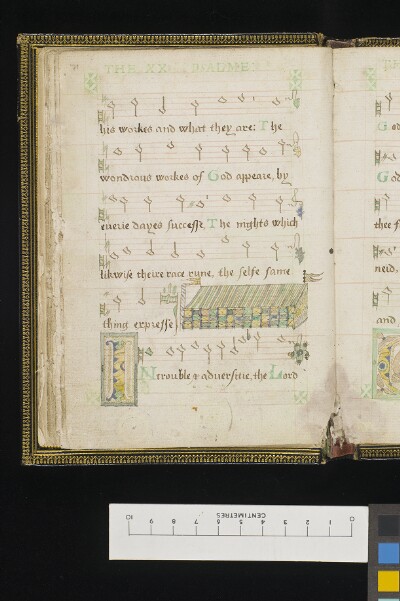 THE XX PSALME
his workes and what they are: The
wondrous workes of God appeare, by
euerie dayes successe, The nights which
likwise theire race rune, the selfe same
thing expresse,
IN trouble & aduersitie, the Lord
G
God
thee f
and
CENTIMETRES
10 9 8 7 6 5 4 3 2 1 0